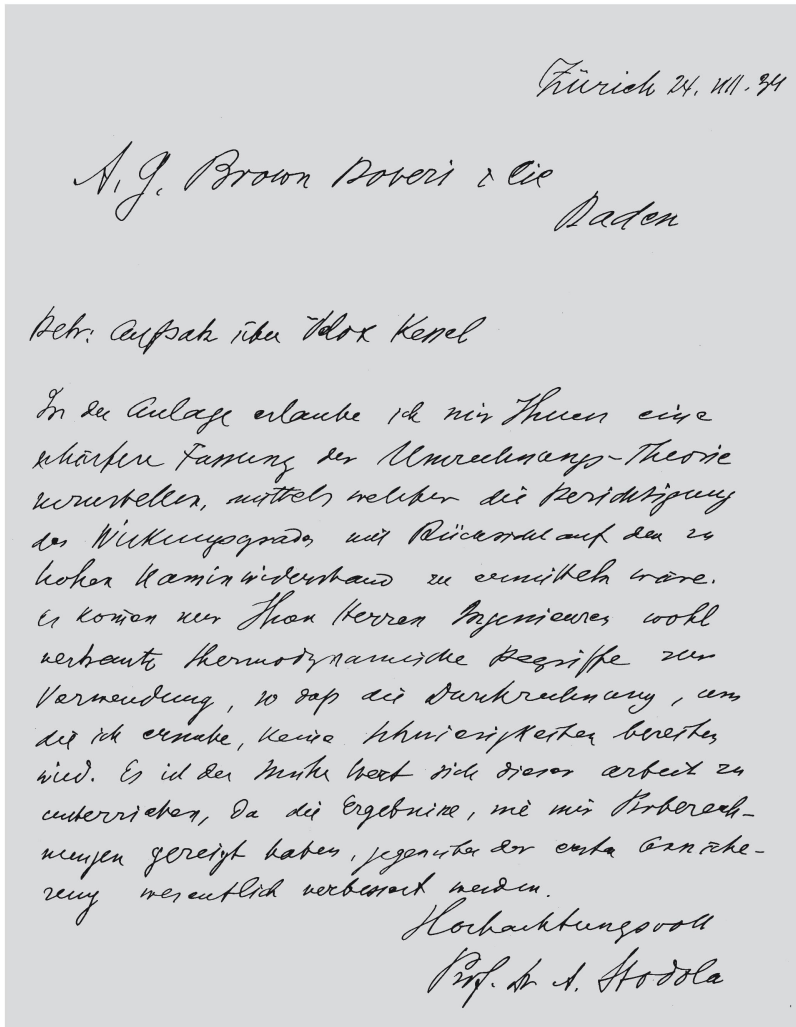 Zürich 24. VII. 34
A. G. Brown Boveri & Cie
Baden
Betr: Aufsatz über Velox Kessel
In der Anlage erlaube ich mir Ihnen eine
schärfere Fassung der Umrechnungs-Theorie
vorzustellen, mittels welcher die Berichtigung
des Wirkungsgrades mit Rücksicht auf den zu
hohen Kaminwiderstand zu ermitteln wäre.
Es komen nur Ihren Herren Ingenieuren wohl
vertraute thermodynamische Begriffe zur
Verwendung, so daß die Durchrechnung, um
die ich ersuche, keine Schwierigkeiten bereiten
wird. Es ist der Mühe Wert sich dieser arbeit zu
unterziehen, da die Ergebnisse, wie mir Proberech-
nungen gezeigt haben, gegenüber der ersten Annähe-
rung wesentlich verbessert werden.
Hochachtungsvoll
Prof. Dr A. Stodola